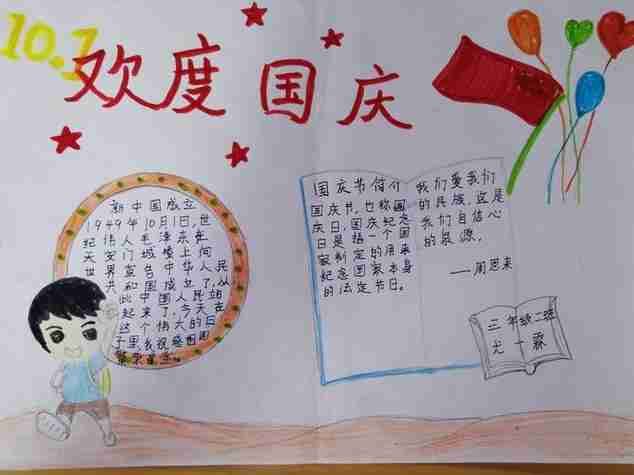 10.1
欢度国庆
新中国成立
1949年10月1日,世
纪伟人毛泽东在
天安门城楼上向
世界宣告中华人民
共和国成立了,从
此中国人民站
起来了,今天在
这个伟大的日
子里,我祝愿祖国
繁荣富强。
国庆节简介
国庆节,也称国
庆日,国庆纪念
日是指一个国
家制定的用来
纪念国家本身
的法定节日。
我们爱我们
的民族,这是
我们自信心
的泉源。
——周恩来
三年级二班
尤一霖